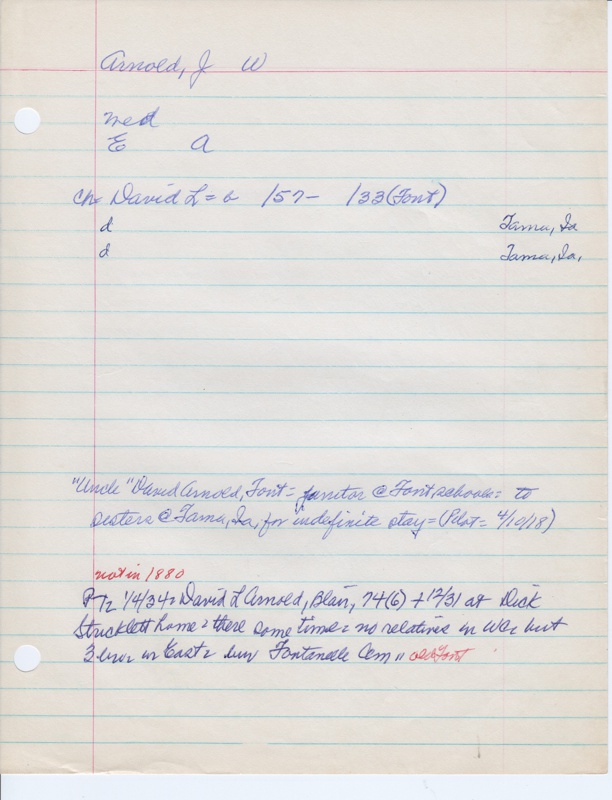 Arnold, J W
med
E A
ch= David L = b /57- /33 (Font)
d Tama, Ia
d Tama, Ia,
"Uncle" David Arnold, Font = janitor @ Font. schools = to
sisters @ Tama, Ia, for indefinite stay = (Pilot = 4/10/18)
not in 1880
1/4/34 = David L Arnold, Blair, 74(6) + 12/31 at Dick
Stricklett home = there some time = no relatives in WC but
3 in East = bur Fontanelle Cem " old Font